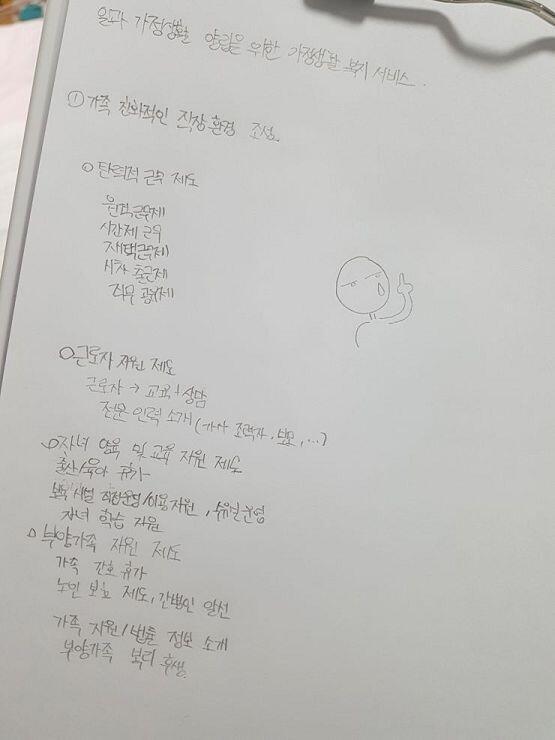 일과 가정생활 양립을 위한 가정생활 복지 서비스.
① 가족 친화적인 직장 환경 조성.
○ 탄력적 근무 제도
원격근무제
시간제 근무
재택근무제
시차 출근제
직무 공유제
○ 근로자 지원 제도
근로자 → 교육 + 상담
전문 인력 소개 (가사 조력자, 보모, ...)
○ 자녀 양육 및 교육 지원 제도
출산/육아 휴가
보육 시설 직장운영/이용지원, 수유실운영
자녀 학습 지원
○ 부양가족 지원 제도
가족 간호 휴가
노인 보호 제도, 간병인 알선
가족 지원/법률 정보 소개
부양가족 복리 후생.